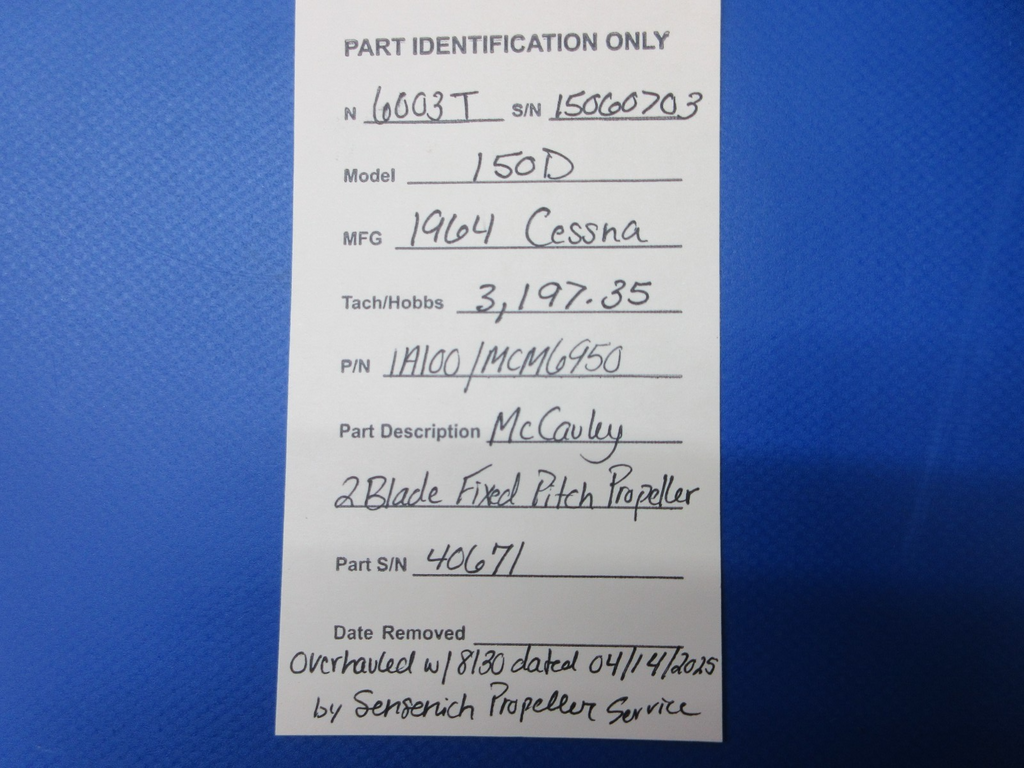 PART IDENTIFICATION ONLY
N 6003T S/N 15060703
Model 150D
MFG 1964 Cessna
Tach/Hobbs 3,197.35
P/N 1A100/MCM6950
Part Description McCauley
2 Blade Fixed Pitch Propeller
Part S/N 40671
Date Removed
Overhauled w/ 8130 dated 04/14/2025
by Sensenich Propeller Service